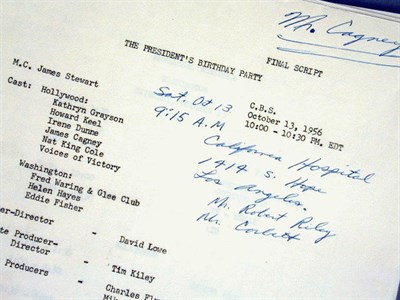 Mr. Cagney
FINAL SCRIPT
THE PRESIDENT'S BIRTHDAY PARTY
M.C. James Stewart
C.B.S.
October 13, 1956
10:00 - 10:30 PM. EDT
Sat. Oct 13
9:15 A.M
California Hospital
1414 S. Hope
Los Angeles.
Mr. Robert Riley
Mr. Corbett
Cast: Hollywood:
Kathryn Grayson
Howard Keel
Irene Dunne
James Cagney
Nat King Cole
Voices of Victory
Washington:
Fred Waring & Glee Club
Helen Hayes
Eddie Fisher
er-Director - David Lowe
te Producer-
Director - Tim Kiley
Producers - Charles